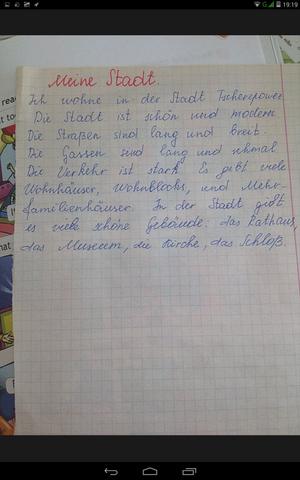 19:19
Meine Stadt.
Ich wohne in der Stadt Tscherepowez
Die Stadt ist schön und modern
Die Straßen sind lang und breit.
Die Gassen sind lang und schmal
Die Verkehr ist stark. Es gibt viele
Wohnhäuser, Wohnblocks, und Mehr-
familienhäuser. In der Stadt gibt
es viele schöne Gebäude: das Rathaus,
das Museum, die Kirche, das Schloß.